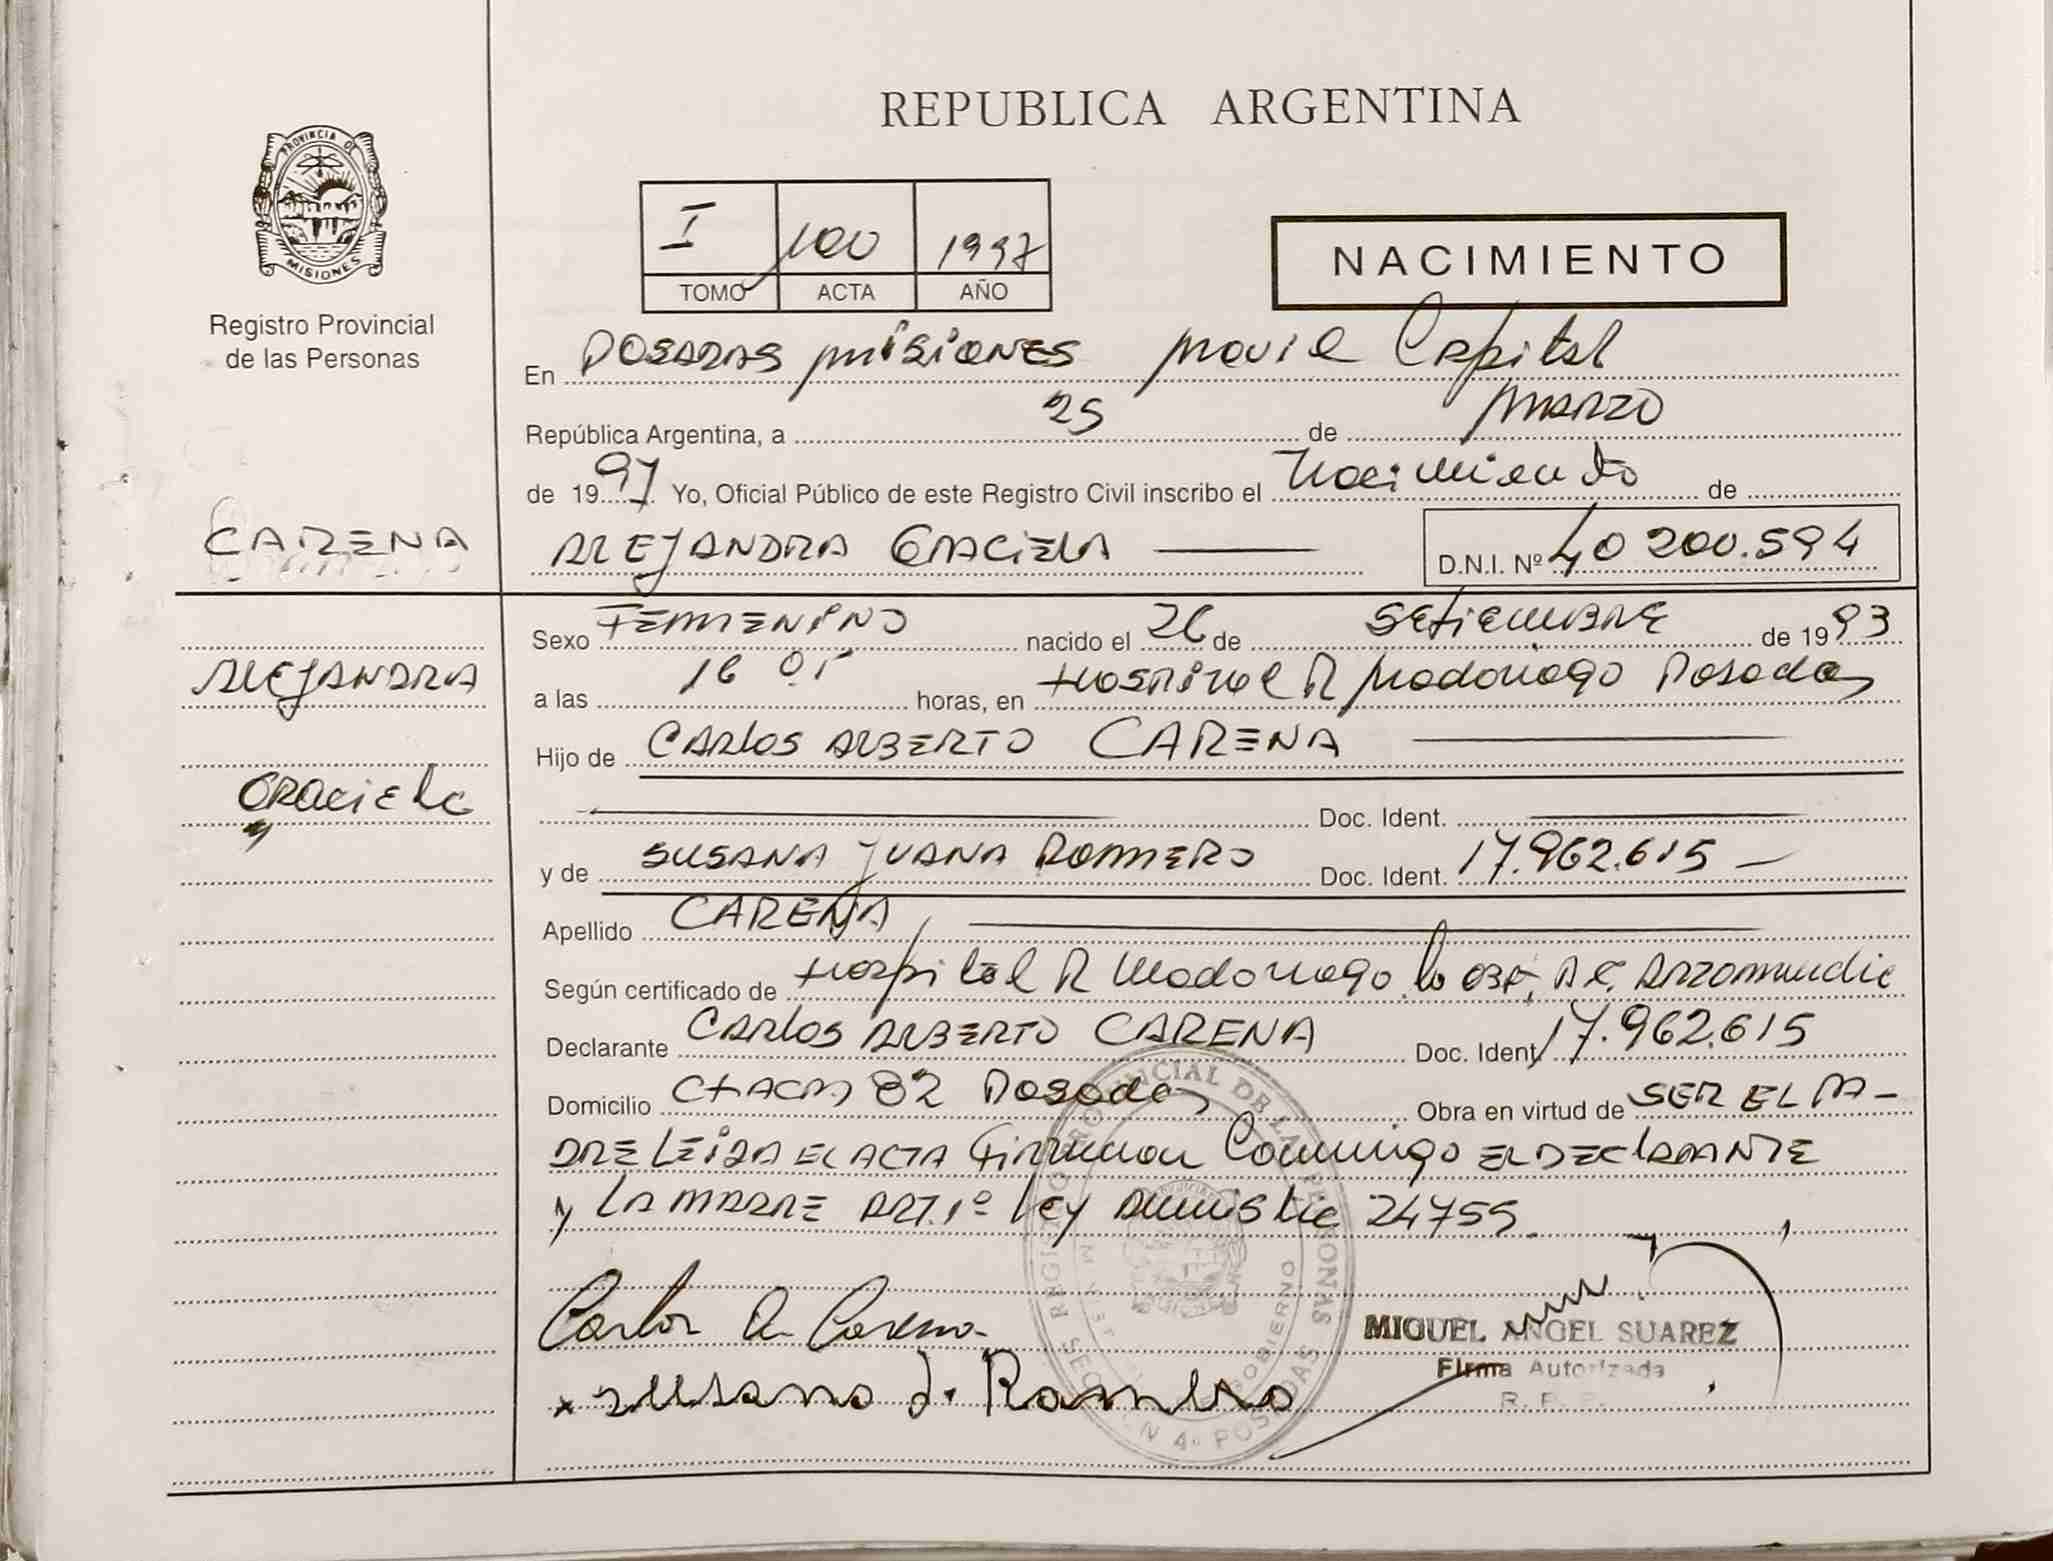 REPUBLICA ARGENTINA
PROVINCIA DE
MISIONES
Registro Provincial
de las Personas
I 100 1997
TOMO ACTA AÑO
NACIMIENTO
En POSADAS MISIONES Movil Capital
República Argentina, a 25 de MARZO
de 1997 Yo, Oficial Público de este Registro Civil inscribo el Nacimiento de
CARENA
ALEJANDRA GRACIELA
D.N.I. Nº 40 200.594
ALEJANDRA
Graciela
Sexo FEMENINO nacido el 26 de SEtiEMBRE de 1993
a las 16 05 horas, en Hospital R Madariaga Posadas
Hijo de CARlos ALBERTO CARENA
Doc. Ident.
y de SUSANA JUANA ROMERO Doc. Ident. 17.962.615
Apellido CARENA
Según certificado de Hospital R Madariaga lo
Declarante CARlos ALBERTO CARENA Doc. Ident. 17.962.615
Domicilio CHACRA 82 Posadas Obra en virtud de SER EL PA-
DRE LEIDA EL ACTA Firman Conmigo EL DEClARANTE
y LA MADRE ART. 1º Ley Amnistia 24755
Carlos A. Carena
x Susana J. Romero
MIGUEL ANGEL SUAREZ
Firma Autorizada
R. P. P.
REGISTRO PROVINCIAL DE LAS PERSONAS
GOBIERNO
SECCION 4º POSADAS